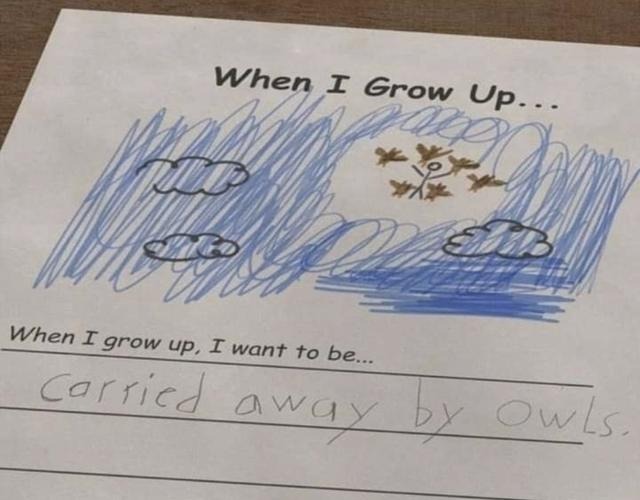 When I Grow Up...
When I grow up, I want to be...
Carried away by owls.